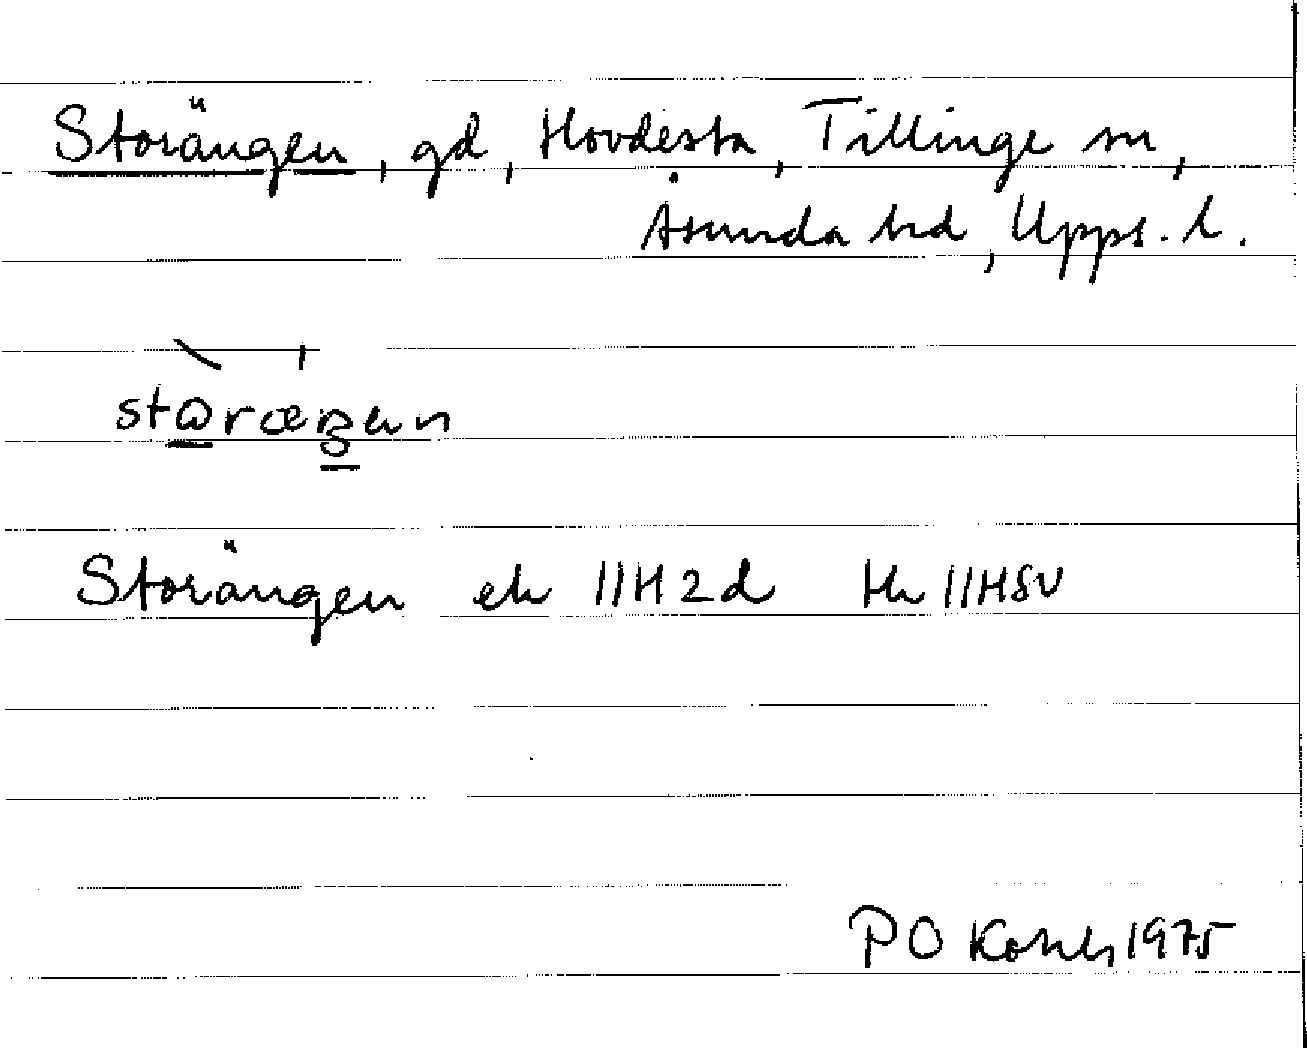 Storängen, gd, Hovdesta, Tillinge sn,
Åsunda hd, Upps. l.
Storängen ek 11H2d Hk 11HSV
PO 1975